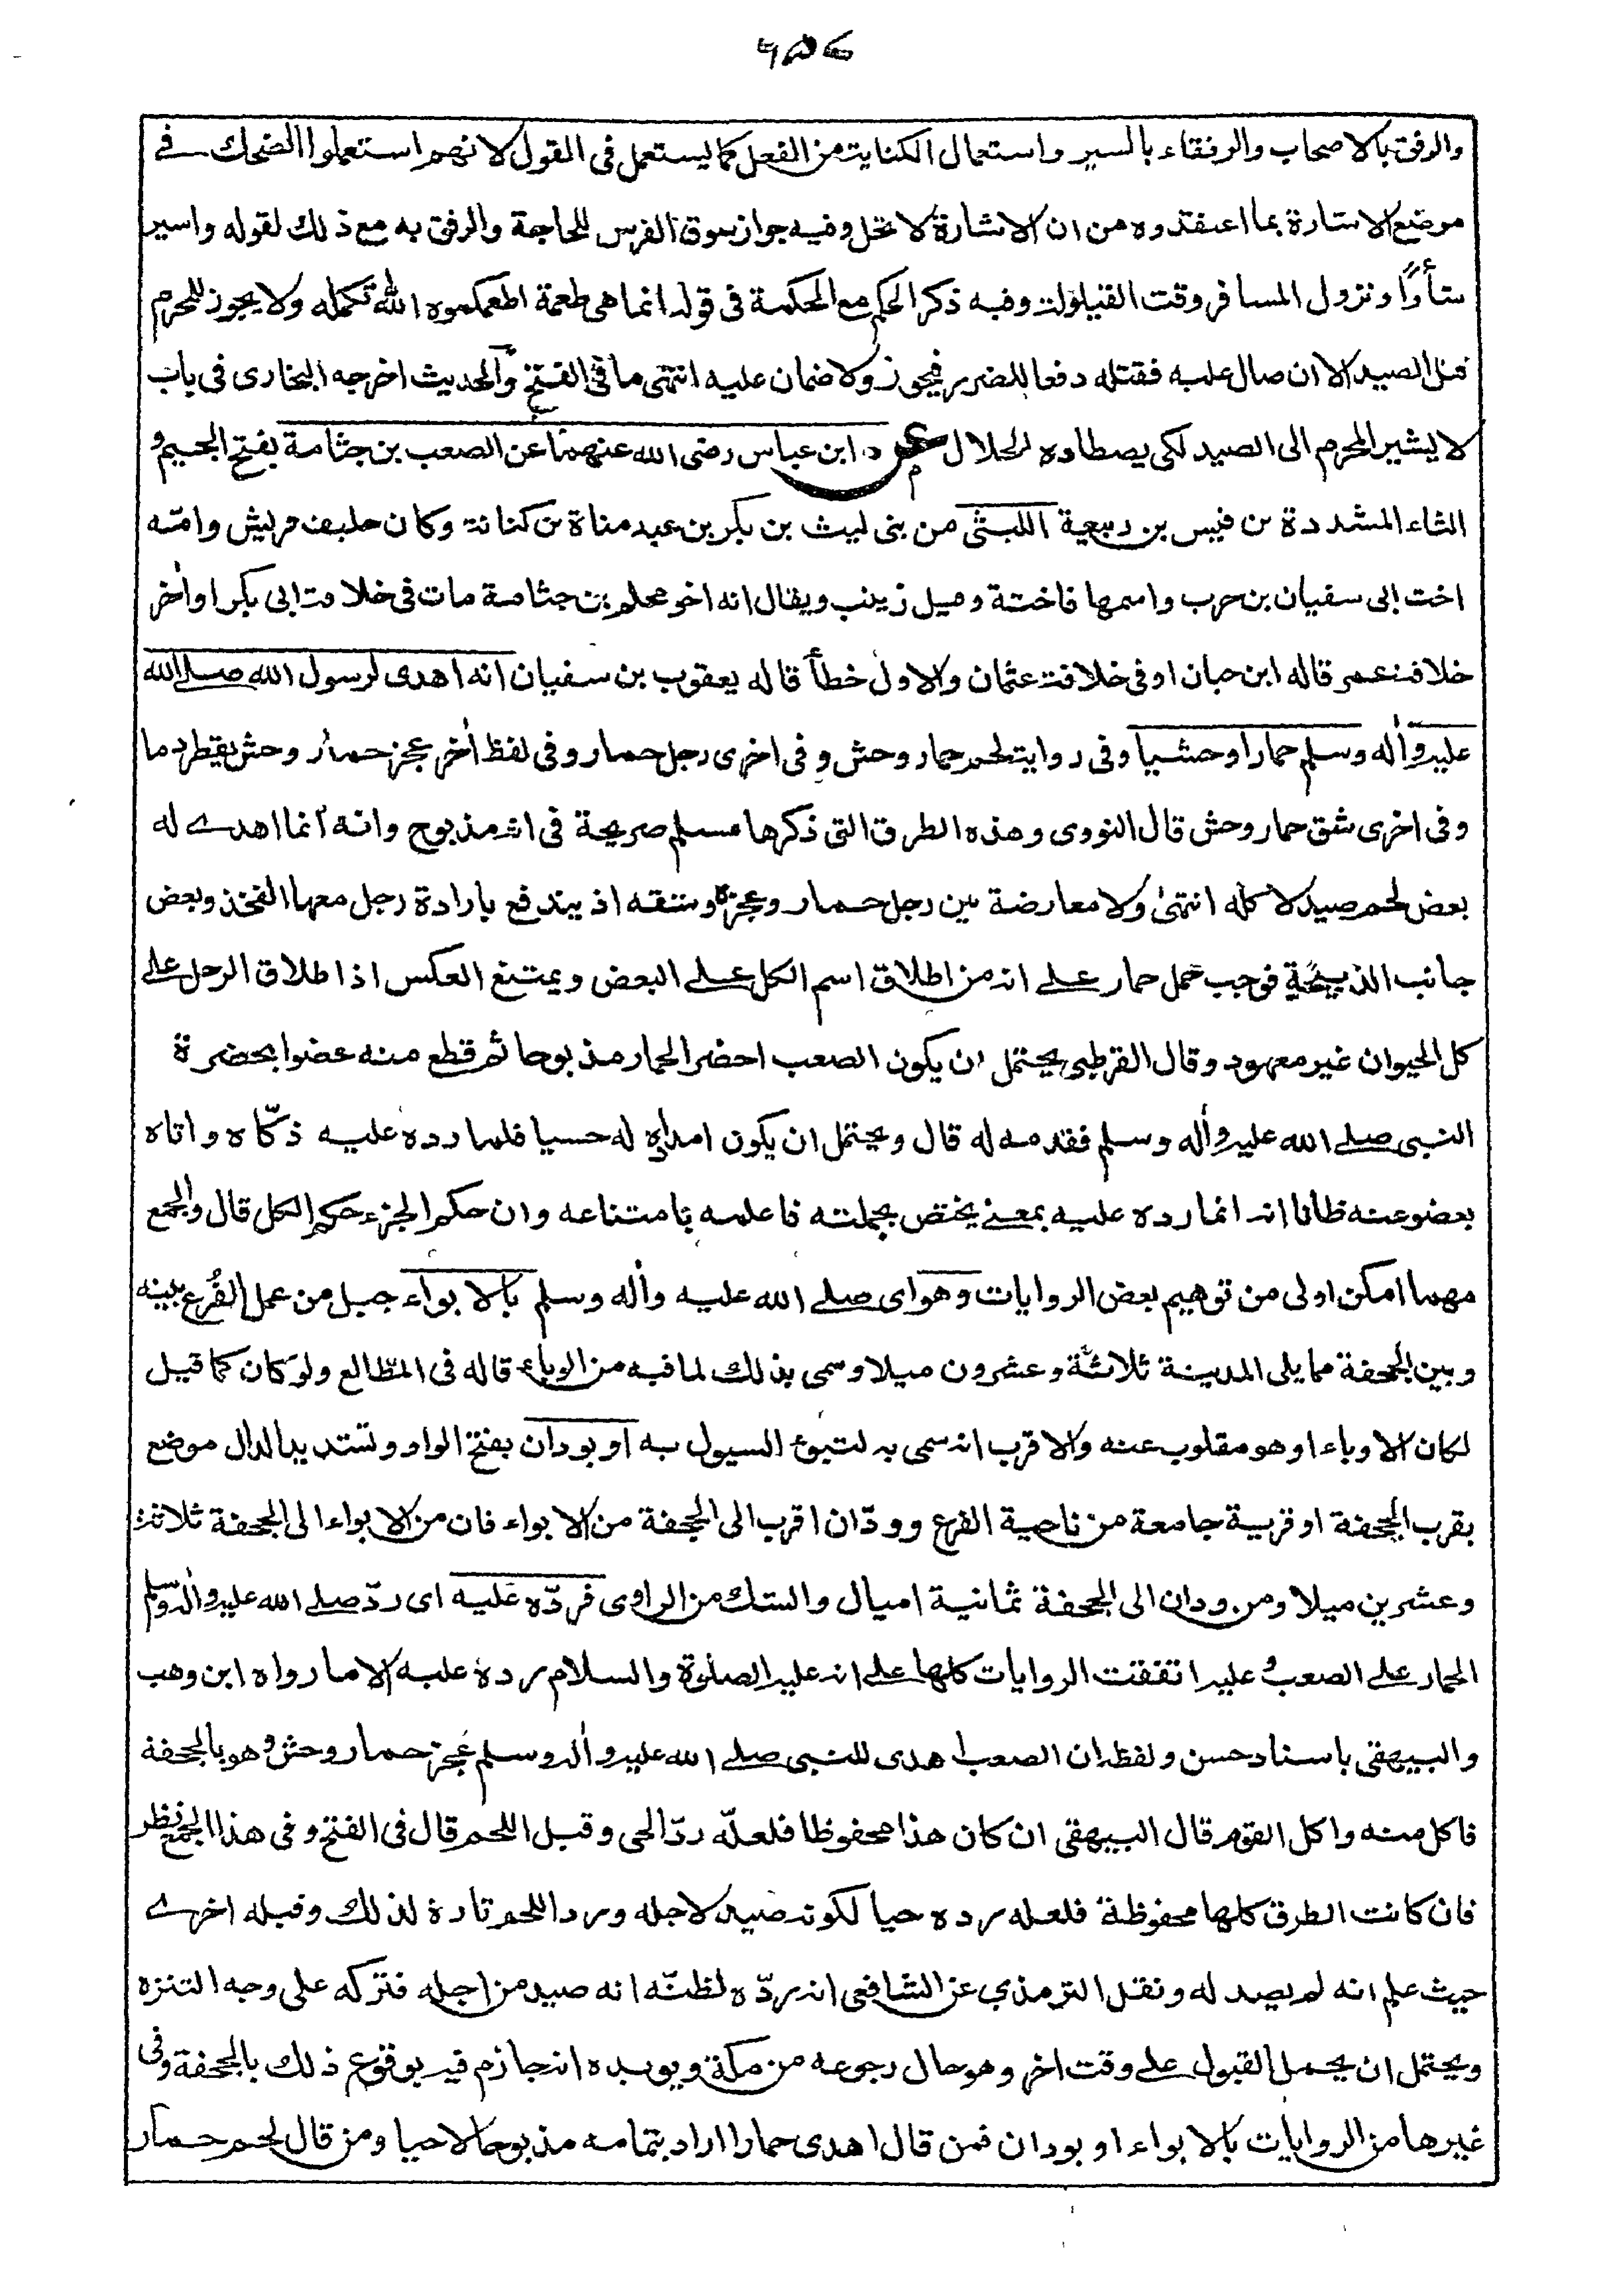 ٦٥٧
والرفق بالاصحاب والرفقاء بالسير واستعمال الكناية من الفعل كما يستعمل فى القول لانهم استعملوا الضحك فے
موضع الاشارة بما اعتقدوه من ان الاشارة لا تحل وفيه جواز سوق الفرس للحاجة والرفق به مع ذلك لقوله واسير
شأوًا ونزول المسافر وقت القيلولة وفيه ذكر الحكم مع الحكمة فى قوله انما هى طعمة اطعمكموه الله تكمله ولا يجوز للمحرم
قتل الصيد الا ان صال عليه فقتله دفعا للضرر فيجوز ولا ضمان عليه انتهى ما فى الفتح والحديث اخرجه البخارى فى باب
لا يشير المحرم الى الصيد لكى يصطاده الحلال عن ابن عباس رضى الله عنهما عن الصعب بن جثامة بفتح الجيم و
الثاء المشددة بن قيس بن ربيعة الليثى من بنى ليث بن بكر بن عبد مناة بن كنانة وكان حليف قريش وامّه
اخت ابى سفيان بن حرب واسمها فاختة وقيل زينب ويقال انه اخو محلم بن جثامة مات فى خلافة ابى بكر او اٰخر
خلافة عمر قاله ابن حبان او فى خلافة عثمان والاول خطأ قاله يعقوب بن سفيان انه اهدى لرسول الله صلے الله
عليه واٰله وسلم حمارا وحشيا وفى رواية لحم حمار وحش وفى اخرى رجل حمار وفى لفظ اٰخر عجز حمار وحش يقطر دما
وفى اخرى شق حمار وحش قال النووى وهذه الطرق التى ذكرها مسلم صريحة فى انه مذبوح وانه انما اهدے له
بعض لحم صيد لا كله انتهىٰ ولا معارضة بين رجل حمار وعجزه وشقه اذ يندفع بارادة رجل معها الفخذ وبعض
جانب الذبيحة فوجب حمل حمار علے انه من اطلاق اسم الكل علے البعض ويمتنع العكس اذ اطلاق الرجل علے
كل الحيوان غير معهود وقال القرطبى يحتمل ان يكون الصعب احضر الحمار مذبوحا ثم قطع منه عضوا بحضرة
النبى صلے الله عليه واٰله وسلم فقدمه له قال ويحتمل ان يكون اهداه له حيا فلما رده عليه ذكّاه واتاه
بعضو منه ظانا انه انما رده عليه بمعنے يختص بجملته فاعلمه بامتناعه وان حكم الجزء حكم الكل قال والجمع
مهما امكن اولى من توهيم بعض الروايات وهو اى صلے الله عليه واٰله وسلم بالابواء جبل من عمل الفُرع بينه
وبين الجحفة مما يلى المدينة ثلاثة وعشرون ميلا وسمى بذلك لما فيه من الوباء قاله فى المطالع ولو كان كما قيل
لكان الاوباء او هو مقلوب عنه والاقرب انه سمى به لتبوء السيول به او بودان بفتح الواو وتشديد الدال موضع
بقرب الجحفة او قرية جامعة من ناحية الفرع وودّان اقرب الى الجحفة من الابواء فان من الابواء الى الجحفة ثلاثة
وعشرين ميلا ومن ودان الى الجحفة ثمانية اميال والشك من الراوى فردّه عليه اى ردّ صلے الله عليه واٰله وسلم
الحمار علے الصعب وعليه اتفقت الروايات كلها علے انه عليه الصلوة والسلام رده عليه الا ما رواه ابن وهب
والبيهقى باسناد حسن ولفظه ان الصعب اهدى للنبى صلے الله عليه واٰله وسلم عجز حمار وحش وهو بالجحفة
فاكل منه واكل القوم قال البيهقى ان كان هذا محفوظا فلعلّه ردّ الحى وقبل اللحم قال فى الفتح وفى هذا الجمع نظر
فان كانت الطرق كلها محفوظة فلعله رده حيا لكونه صيد لاجله ورد اللحم تارة لذلك وقبله اخرے
حيث علم انه لم يصد له ونقل الترمذي عن الشافعى انه ردّه لظنّه انه صيد من اجله فتركه على وجه التنزه
ويحتمل ان يحمل القبول علے وقت اخر وهو حال رجوعه من مكة ويويده انه جازم فيه بوقوع ذلك بالجحفة وفى
غيرها من الروايات بالابواء او بودان فمن قال اهدى حمارا اراد بتمامه مذبوحا لا حيا ومن قال لحم حمار